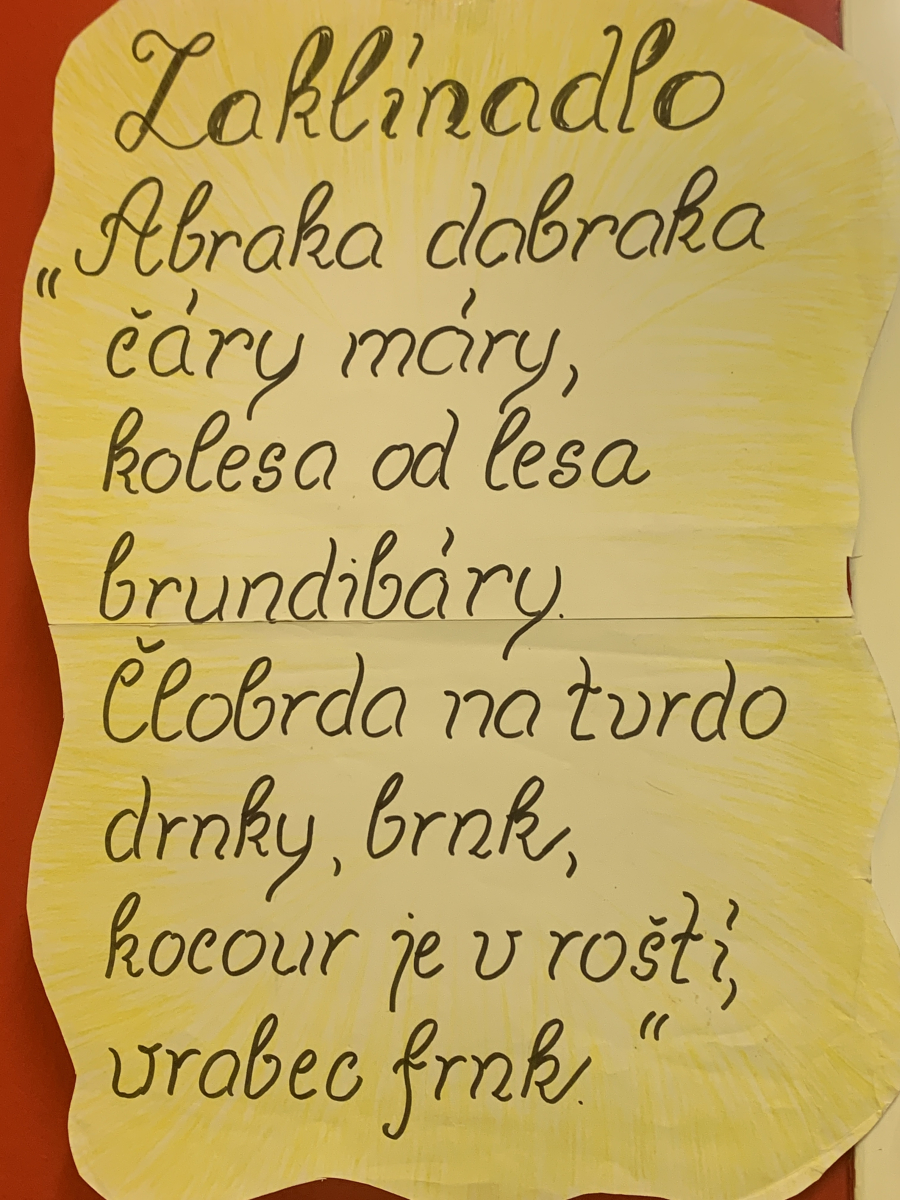 Zaklínadlo
„Abraka dabraka
čáry máry,
kolesa od lesa
brundibáry.
Člobrda na tvrdo
drnky, brnk,
kocour je v roští,
vrabec frnk.“